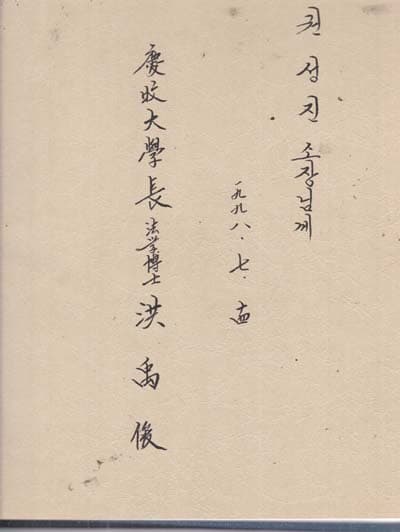 권성진 소장님께
一九九八.七.
慶旼大學長 法学博士 洪禹俊